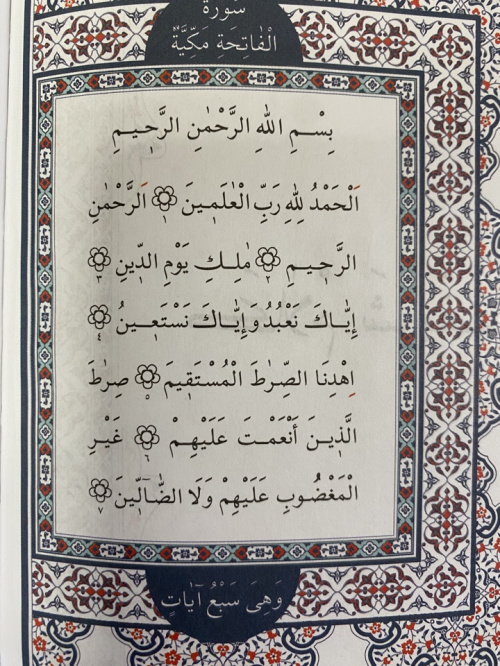 سُورَةُ
الْفَاتِحَةِ مَكِّيَّةٌ
بِسْمِ اللهِ الرَّحْمٰنِ الرَّحِيمِ
اَلْحَمْدُ لِلهِ رَبِّ الْعٰلَمِينَ ١ اَلرَّحْمٰنِ
الرَّحِيمِ ٢ مٰلِكِ يَوْمِ الدِّينِ ٣
إِيَّاكَ نَعْبُدُ وَإِيَّاكَ نَسْتَعِينُ ٤
اِهْدِنَا الصِّرٰطَ الْمُسْتَقِيمَ ٥ صِرٰطَ
الَّذِينَ أَنْعَمْتَ عَلَيْهِمْ ٦ غَيْرِ
الْمَغْضُوبِ عَلَيْهِمْ وَلَا الضَّآلِّينَ ٧
وَهِيَ سَبْعُ آيَاتٍ